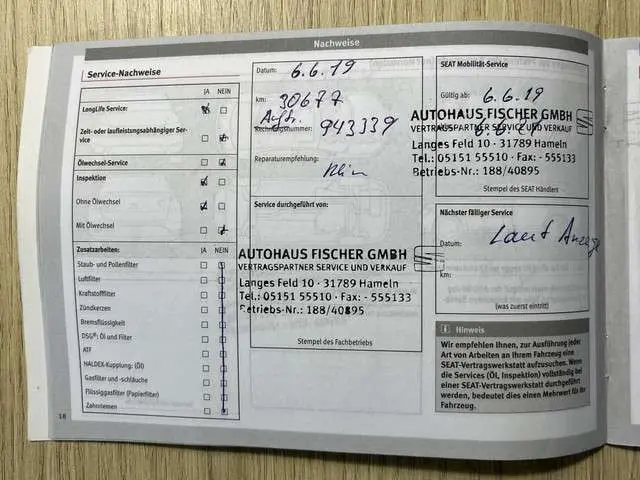 Nachweise
Service-Nachweise
JA NEIN
LongLife Service:
Zeit- oder laufleistungsabhängiger Ser-
vice
Ölwechsel-Service
Inspektion
Ohne Ölwechsel
Mit Ölwechsel
Zusatzarbeiten: JA NEIN
Staub- und Pollenfilter
Luftfilter
Kraftstofffilter
Zündkerzen
Bremsflüssigkeit
DSG®: Öl und Filter
ATF
HALDEX-Kupplung: (Öl)
Gasfilter und -schläuche
Flüssiggasfilter (Papierfilter)
Zahnriemen
18
Datum: 6.6.19
km: 30677
Auftr.
Rechnungsnummer: 943339
Reparaturempfehlung:
Service durchgeführt von:
AUTOHAUS FISCHER GMBH
VERTRAGSPARTNER SERVICE UND VERKAUF
Langes Feld 10 · 31789 Hameln
Tel.: 05151 55510 · Fax: - 555133
Betriebs-Nr.: 188/40895
Stempel des Fachbetriebs
SEAT Mobilität-Service
Gültig ab: 6.6.19
AUTOHAUS FISCHER GMBH
VERTRAGSPARTNER SERVICE UND VERKAUF
Langes Feld 10 · 31789 Hameln
Tel.: 05151 55510 · Fax: - 555133
Betriebs-Nr.: 188/40895
Stempel des SEAT Händlers
Nächster fälliger Service
Datum: Laut Anzeige
km:
(was zuerst eintritt)
Hinweis
Wir empfehlen Ihnen, zur Ausführung jeder
Art von Arbeiten an Ihrem Fahrzeug eine
SEAT-Vertragswerkstatt aufzusuchen. Wenn
die Services (Öl, Inspektion) vollständig bei
einer SEAT-Vertragswerkstatt durchgeführt
werden, bedeutet dies einen Mehrwert für Ihr
Fahrzeug.